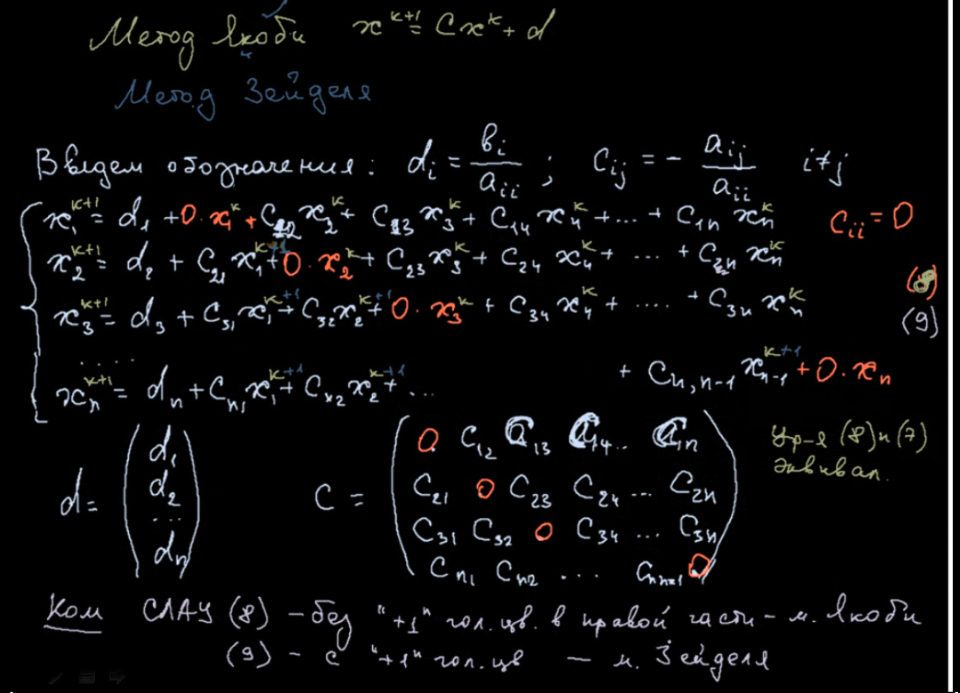 Метод Якоби x^{k+1} = Cx^k + d
Метод Зейделя
Введем обозначения: d_i = b_i / a_ii ; c_ij = - a_ij / a_ii i≠j
x_1^{k+1} = d_1 + 0·x_1^k + C_12 x_2^k + C_13 x_3^k + C_14 x_4^k + ... + C_1n x_n^k C_ii = 0
x_2^{k+1} = d_2 + C_21 x_1^{k+1} + 0·x_2^k + C_23 x_3^k + C_24 x_4^k + ... + C_2n x_n^k (8)
x_3^{k+1} = d_3 + C_31 x_1^{k+1} + C_32 x_2^{k+1} + 0·x_3^k + C_34 x_4^k + .... + C_3n x_n^k (9)
.....
x_n^{k+1} = d_n + C_n1 x_1^{k+1} + C_n2 x_2^{k+1} + ... + C_n,n-1 x_{n-1}^{k+1} + 0·x_n
d = (d_1 d_2 ... d_n)
C =
0 C_12 C_13 C_14 .. C_1n
C_21 0 C_23 C_24 ... C_2n
C_31 C_32 0 C_34 ... C_3n
C_n1 C_n2 ... C_nn-1 0
Ур-я (8) и (7)
эквивал.
Ком СЛАУ (8) - без "+1" гол. цв. в правой части - м. Якоби
(9) - с "+1" гол. цв - м. Зейделя